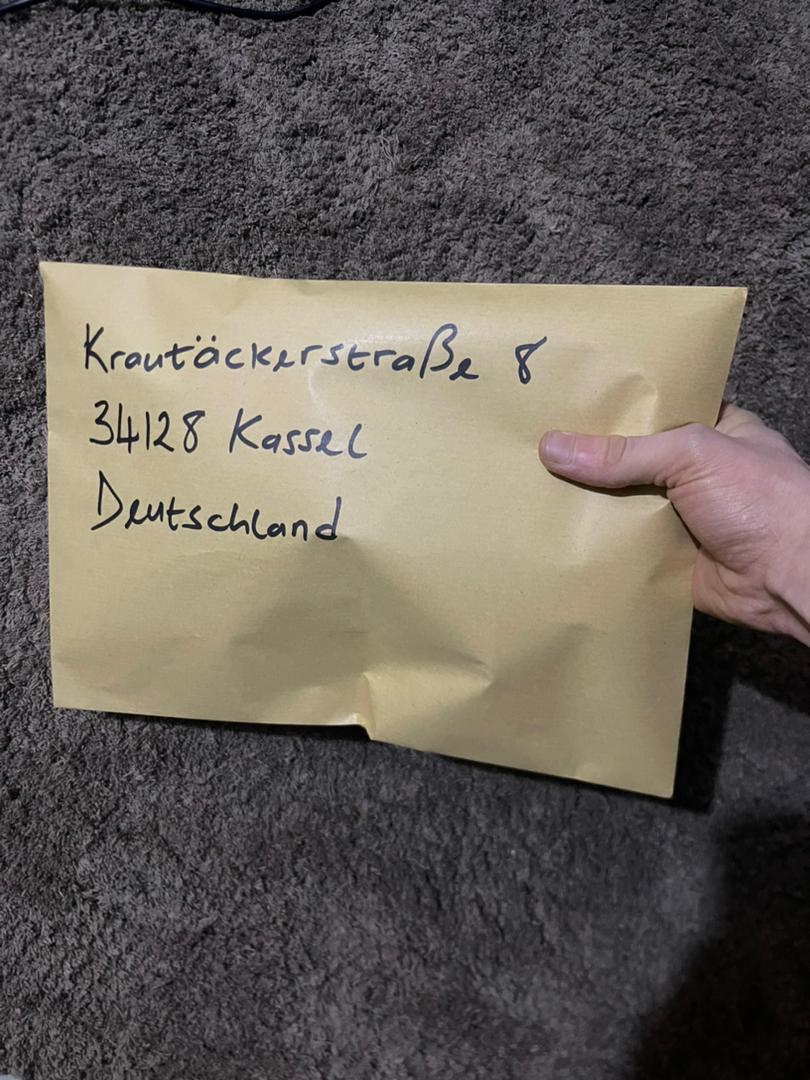 Krautäckerstraße 8
34128 Kassel
Deutschland